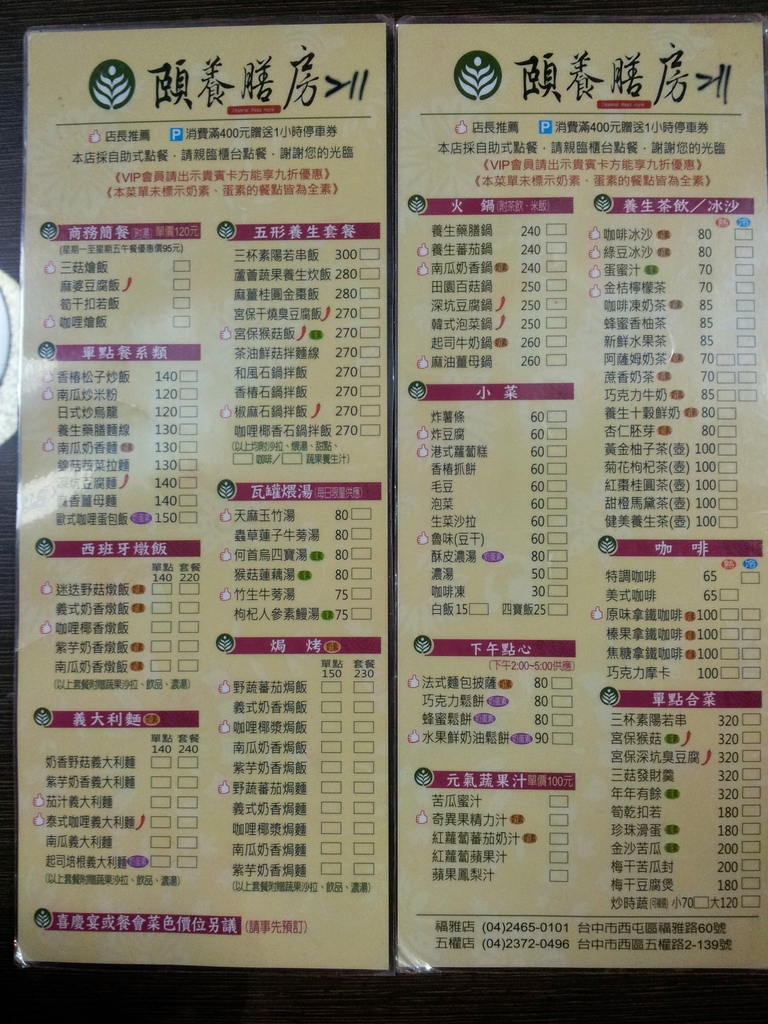 頤養膳房
店長推薦 P 消費滿400元贈送1小時停車券
本店採自助式點餐，請親臨櫃台點餐，謝謝您的光臨
《VIP會員請出示貴賓卡方能享九折優惠》
《本菜單未標示奶素、蛋素的餐點皆為全素》
商務簡餐(附湯) 單價120元
(星期一至星期五午餐優惠價95元)
三菇燴飯
麻婆豆腐飯
筍干扣若飯
咖哩燴飯
單點餐系類
香椿松子炒飯 140
南瓜炒米粉 120
日式炒烏龍 120
養生藥膳麵線 130
南瓜奶香麵 130
鍋菇蔬菜拉麵 130
深坑豆腐麵 140
麻香薑母麵 140
歐式咖哩蛋包飯 150
西班牙燉飯
單點 套餐
140 220
迷迭野菇燉飯
義式奶香燉飯
咖哩椰香燉飯
紫芋奶香燉飯
南瓜奶香燉飯
(以上套餐附贈蔬果沙拉、飲品、濃湯)
義大利麵
單點 套餐
140 240
奶香野菇義大利麵
紫芋奶香義大利麵
茄汁義大利麵
泰式咖哩義大利麵
南瓜義大利麵
起司培根義大利麵
(以上套餐附贈蔬果沙拉、飲品、濃湯)
五形養生套餐
三杯素陽若串飯 300
蘆薈蔬果養生炊飯 280
麻薑桂圓金棗飯 280
宮保干燒臭豆腐飯 270
宮保猴菇飯 270
茶油鮮菇拌麵線 270
和風石鍋拌飯 270
香椿石鍋拌飯 270
椒麻石鍋拌飯 270
咖哩椰香石鍋拌飯 270
(以上均附沙拉、煨湯、甜點、
咖啡／ 蔬果養生汁)
瓦罐煨湯(每日限量供應)
天麻玉竹湯 80
蟲草蓮子牛蒡湯 80
何首烏四寶湯 80
猴菇蓮藕湯 80
竹生牛蒡湯 75
枸杞人參素鰻湯 75
焗 烤
單點 套餐
150 230
野蔬蕃茄焗飯
義式奶香焗飯
咖哩椰漿焗飯
南瓜奶香焗飯
紫芋奶香焗飯
野蔬蕃茄焗麵
義式奶香焗麵
咖哩椰漿焗麵
南瓜奶香焗麵
紫芋奶香焗麵
(以上套餐附贈蔬果沙拉、飲品、濃湯)
喜慶宴或餐會菜色價位另議 (請事先預訂)
頤養膳房
店長推薦 P 消費滿400元贈送1小時停車券
本店採自助式點餐，請親臨櫃台點餐，謝謝您的光臨
《VIP會員請出示貴賓卡方能享九折優惠》
《本菜單未標示奶素、蛋素的餐點皆為全素》
火 鍋(附茶飲、米飯)
養生藥膳鍋 240
養生蕃茄鍋 240
南瓜奶香鍋 240
田園百菇鍋 250
深坑豆腐鍋 250
韓式泡菜鍋 250
起司牛奶鍋 260
麻油薑母鍋 260
小 菜
炸薯條 60
炸豆腐 60
港式蘿蔔糕 60
香椿抓餅 60
毛豆 60
泡菜 60
生菜沙拉 60
魯味(豆干) 60
酥皮濃湯 80
濃湯 50
咖啡凍 30
白飯15 四寶飯25
下午點心
(下午2:00~5:00供應)
法式麵包披薩 80
巧克力鬆餅 80
蜂蜜鬆餅 80
水果鮮奶油鬆餅 90
元氣蔬果汁 單價100元
苦瓜蜜汁
奇異果精力汁
紅蘿蔔蕃茄奶汁
紅蘿蔔蘋果汁
蘋果鳳梨汁
養生茶飲／冰沙
熱 冷
咖啡冰沙 80
綠豆冰沙 80
蛋蜜汁 70
金桔檸檬茶 70
咖啡凍奶茶 85
蜂蜜香柚茶 85
新鮮水果茶 85
阿薩姆奶茶 70
蔗香奶茶 70
巧克力牛奶 85
養生十穀鮮奶 80
杏仁胚芽 80
黃金柚子茶(壺) 100
菊花枸杞茶(壺) 100
紅棗桂圓茶(壺) 100
甜橙馬黛茶(壺) 100
健美養生茶(壺) 100
咖 啡
熱 冷
特調咖啡 65
美式咖啡 65
原味拿鐵咖啡 100
榛果拿鐵咖啡 100
焦糖拿鐵咖啡 100
巧克力摩卡 100
單點合菜
三杯素陽若串 320
宮保猴菇 320
宮保深坑臭豆腐 320
三菇發財羹 320
年年有餘 320
筍乾扣若 180
珍珠滑蛋 180
金沙苦瓜 200
梅干苦瓜封 200
梅干豆腐煲 180
炒時蔬 小70 大120
福雅店 (04)2465-0101 台中市西屯區福雅路60號
五權店 (04)2372-0496 台中市西區五權路2-139號